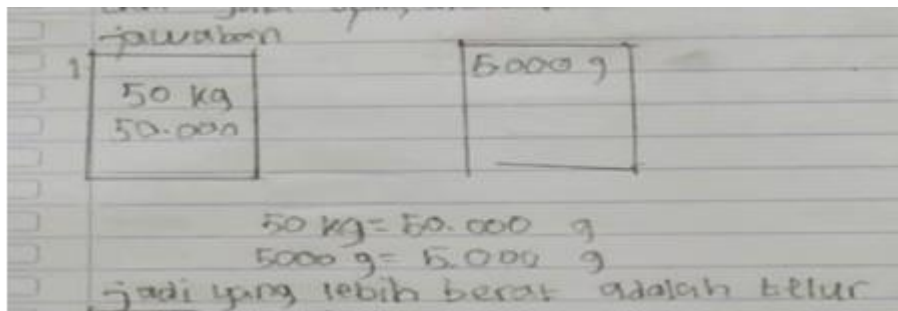 jawaban
1
50 kg
50.000
5000 g
50 kg = 50.000 g
5000 g = 5.000 g
jadi yang lebih berat adalah telur